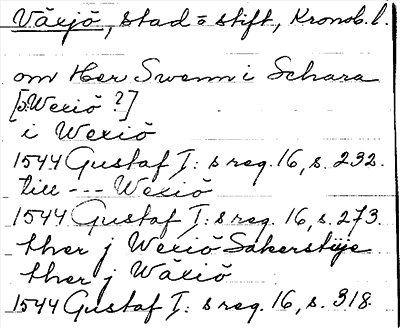 Växjö, stad o stift, Kronob. l.
om Her Swenn i Schara
[o: Wexiö ?]
i Wexiö
1544 Gustaf I:s reg. 16, s. 232.
till --- Wexiö
1544 Gustaf I:s reg. 16, s. 273.
ther j Wexiö Sakerstije
ther j Wäxiö
1544 Gustaf I:s reg. 16, s. 318.